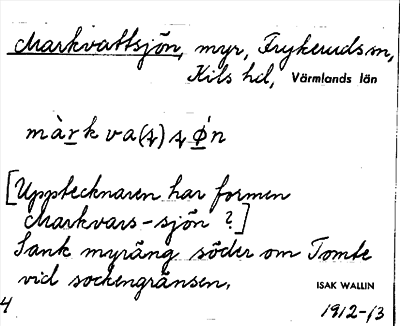 Markvattsjön, myr, Frykeruds sn,
Kils hd, Värmlands län
màrkva(ʂ)ʂø̀n
[Upptecknaren har formen
Markvars-sjön ?]
Sank myräng söder om Tomta
vid sockengränsen.
ISAK WALLIN
4
1912-13